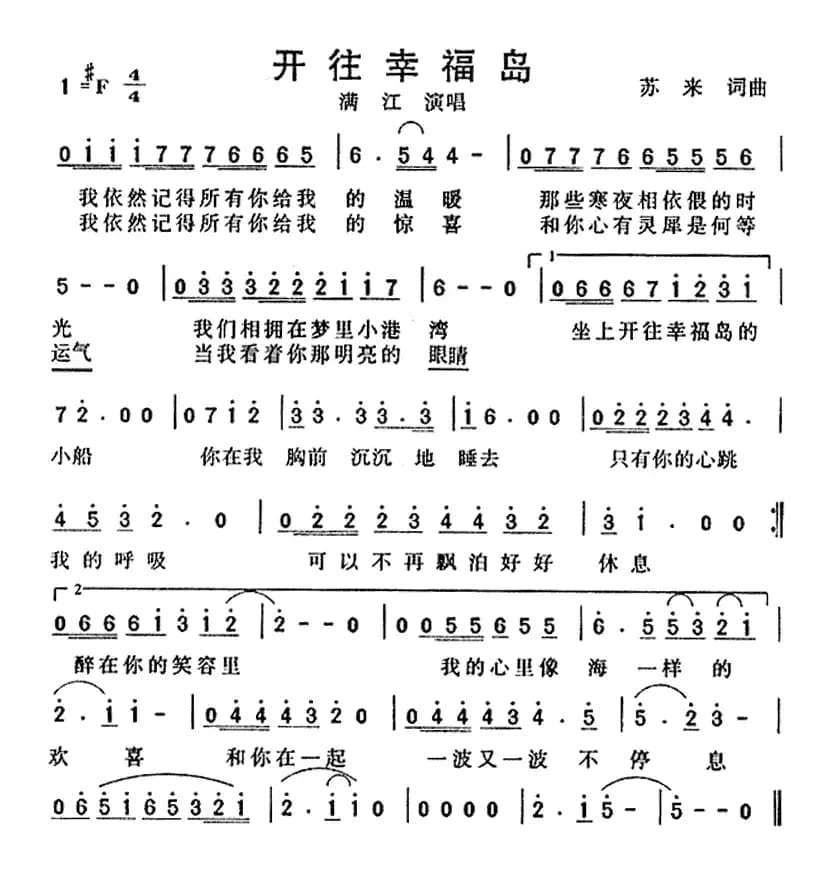 开往幸福岛
1=#F 4/4
满江 演唱
苏来 词曲
0 i i i i 7 7 7 6 6 6 6 5 | 6 . 5 4 4 - | 0 7 7 7 6 6 5 5 5 6 |
我依然记得所有你给我 的 温 暖 那些寒夜相依偎的时
我依然记得所有你给我 的 惊 喜 和你心有灵犀是何等
5 - - 0 | 0 3 3 3 2 2 2 1 1 7 | 6 - - 0 | 1 0 6 6 6 7 1 2 3 1 |
光 我们相拥在梦里小港 湾 坐上开往幸福岛的
运气 当我看着你那明亮的 眼睛
7 2 . 0 0 | 0 7 1 2 | 3 3 . 3 . 3 | 1 6 . 0 0 | 0 2 2 2 3 4 4 . |
小船 你在我 胸前 沉沉 地 睡去 只有你的心跳
4 5 3 2 . 0 | 0 2 2 2 3 4 4 3 2 | 3 1 . 0 0 :||
我的呼吸 可以不再飘泊好好 休息
2
0 6 6 6 1 3 1 2 | 2 - - 0 | 0 0 5 5 6 5 5 | 6 . 5 5 3 2 1 |
醉在你的笑容里 我的心里像 海 一样 的
2 . 1 1 - | 0 4 4 4 3 2 0 | 0 4 4 4 3 4 . 5 | 5 . 2 3 - |
欢 喜 和你在一起 一波又一波 不 停 息
0 6 5 1 6 5 3 2 1 | 2 . 1 1 0 | 0 0 0 0 | 2 . 1 5 - | 5 - - 0 ||